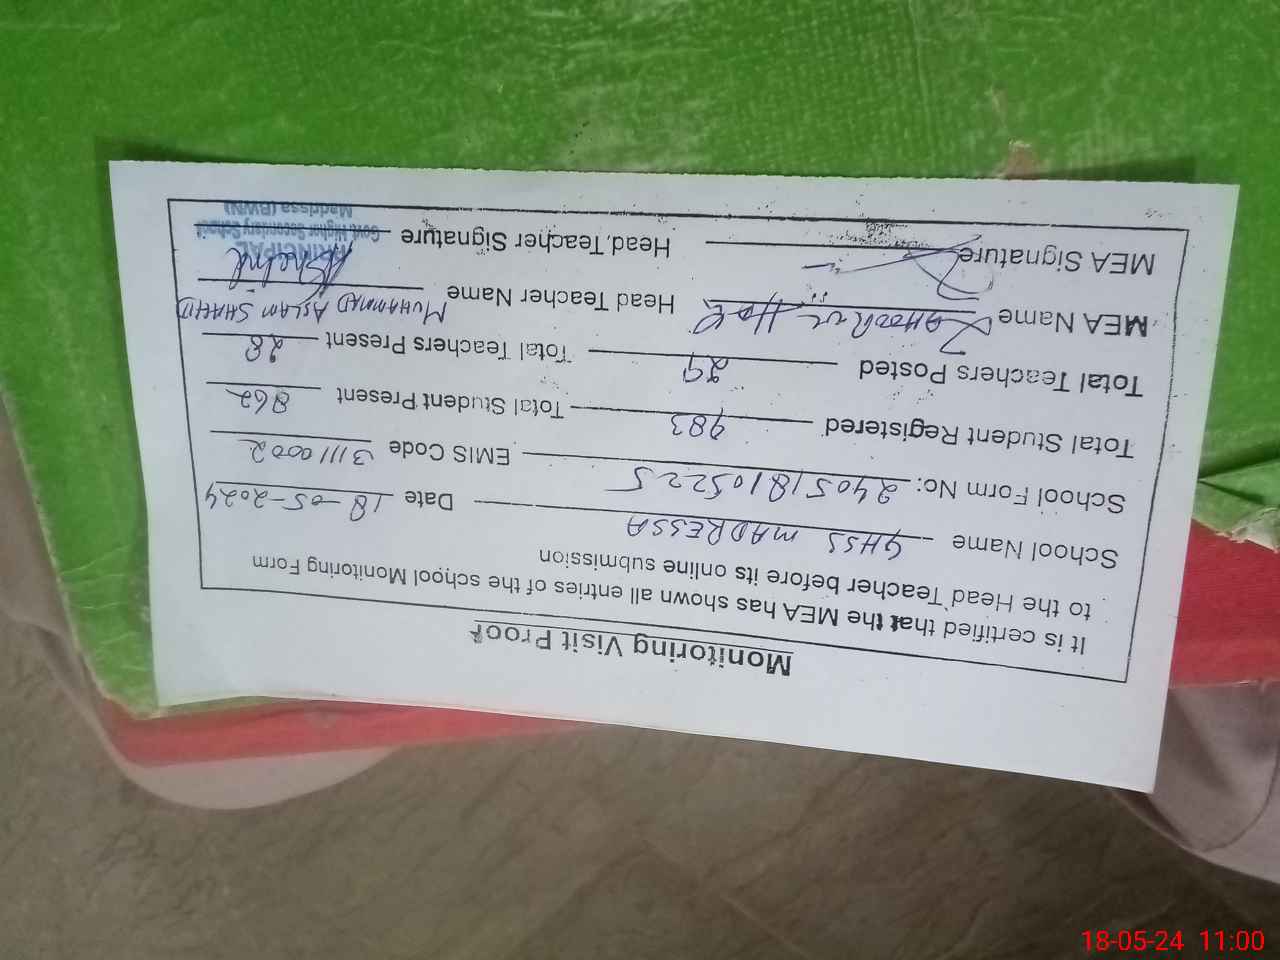 Monitoring Visit Proof
It is certified that the MEA has shown all entries of the school Monitoring Form
to the Head Teacher before its online submission
School Name GHSS MADRESSA Date 18-05-2024
School Form No: 240518105225 EMIS Code 31110002
Total Student Registered 983 Total Student Present 862
Total Teachers Posted 29 Total Teachers Present 28
MEA Name Head Teacher Name MUHAMMAD ASLAM SHAHID
MEA Signature Head Teacher Signature
PRINCIPAL
Govt. Higher Secondary School
Madrissa (BWN)
18-05-24 11:00